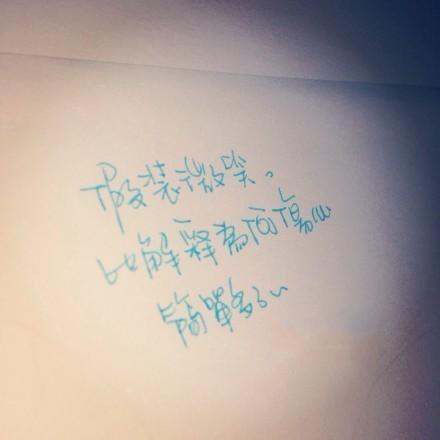 假装微笑。
比解释為何傷心
简單多了